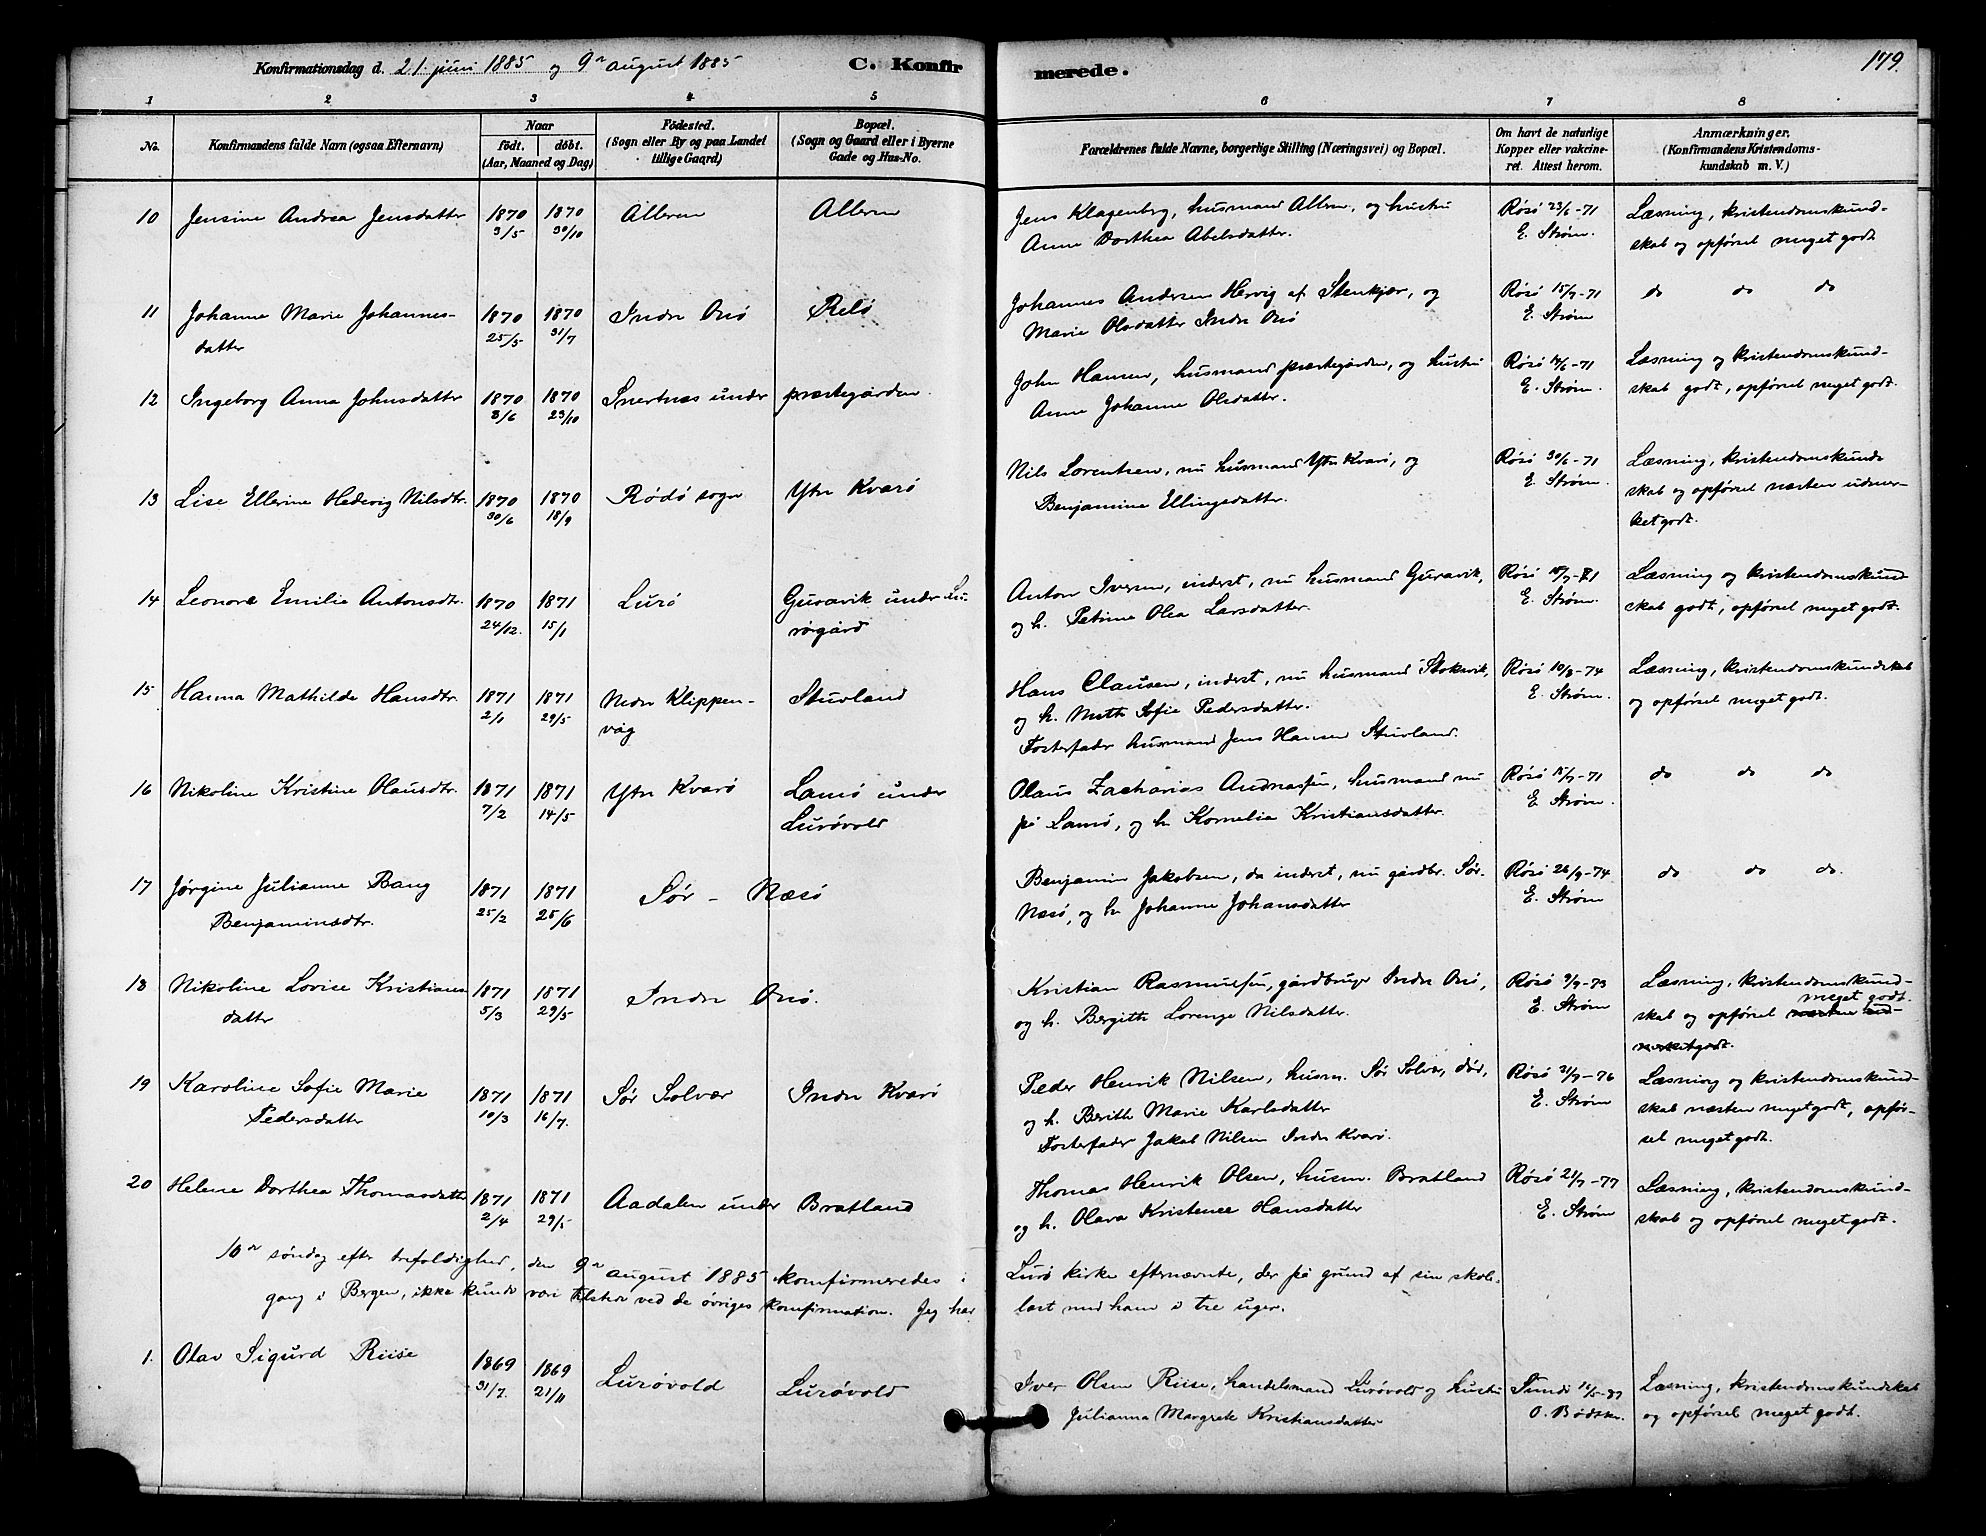 Konfirmationsdag d. 21. juni 1885 og 9de august 1885
C. Konfirmerede.
179.
1 2 3 4 5 6 7 8
No.
Konfirmandens fulde Navn (ogsaa Efternavn)
Naar
født. døbt.
(Aar, Maaned og Dag)
Fødested.
(Sogn eller By og paa Landet
tillige Gaard)
Bopæl.
(Sogn og Gaard eller i Byerne
Gade og Hus-No.
Forældrenes fulde Navne, borgerlige Stilling (Næringsvei) og Bopæl.
Om havt de naturlige
Kopper eller vakcine-
ret. Attest herom.
Anmærkninger.
(Konfirmandens Kristendoms-
kundskab m. V.)
10 Jensine Andrea Jensdatter 1870 3/5 1870 30/10 Alleren Alleren
Jens Klagenberg, husmand Alleren, og hustru
Anne Dorthea Abelsdatter.
Rösö 23/6-71
E. Strøm.
Læsning, kristendomskund-
skab og opførsel meget godt
11 Johanne Marie Johannes-
datter
1870 25/5 1870 31/7 Indre Onö Relö
Johannes Andersen Hervig af Stenkjær, og
Marie Olsdatter Indre Onö
Rösö 15/7-71
E. Strøm
do do do
12 Ingeborg Anna Johnsdatter 1870 8/6 1870 23/10 Snertnes under præstegården.
John Hansen, husmand præstegården, og hustru
Anne Johanne Olsdatter.
Rösö 14/6-71
E. Strøm.
Læsning og kristendomskund-
skab godt, opførsel meget godt.
13 Lise Ellerine Hedevig Nilsdtr. 1870 30/6 1870 18/9 Rödö sogn Ytre Kvarö
Nils Lorentsen, nu husmand Ytre Kvarö, og
Benjamine Ellingsdatter.
Rösö 30/6-71
E. Strøm.
Læsning, kristendomskund-
skab og opførsel næsten udmær-
ket godt.
14 Leonore Emilie Antonsdtr. 1870 24/12. 1871 15/1 Lurö
Guravik under Lu-
rögård
Anton Iversen, inderst, nu husmand Guravik,
og h. Petrine Olea Larsdatter.
Rösö
E. Strøm.
Læsning og kristendomskund-
skab godt, opførsel meget godt.
15 Hanna Mathilde Hansdtr. 1871 2/1 1871 29/5
Nedre Klippen-
våg
Stuvland
Hans Clausen, inderst, nu husmand Stokvik,
og h. Meth Sofie Pedersdatter.
Fosterfader husmand Jens Hansen Stuvland.
Rösö 10/9-74
E. Strøm.
Læsning, kristendomskundskab
og opførsel meget godt.
16 Nikoline Kristine Olausdtr. 1871 7/2 1871 14/5 Ytre Kvarö
Lamö under
Lurövold
Olaus Zacharias Andreassen, husmand nu
på Lamö, og h. Kornelia Kristiansdatter.
Rösö 15/7-71
E. Strøm.
do do do
17 Jørgine Julianne Bang
Benjaminsdtr.
1871 25/2 1871 25/6 Sør-Næsö
Benjamin Jakobsen, da inderst, nu gårdbr. Sør-
Næsö, og h. Johanne Johansdatter
Rösö 26/9-74
E. Strøm
do do do.
18 Nikoline Lovise Kristians-
datter
1871 5/3 1871 29/5 Indre Onö.
Kristian Rasmussen, gårdbruger Indre Onö,
og h. Bergith Lorense Nilsdatter.
Rösö 9/9-73
E. Strøm
Læsning, kristendomskund-
meget godt.
skab og opførsel næsten ud-
mærket godt.
19 Karoline Sofie Marie
Pedersdatter
1871 10/3 1871 16/7. Sør Solvær Indre Kvarö
Peder Henrik Nilsen, husm. Sør Solvær, død,
og h. Berith Marie Karlsdatter
Fosterfader Jakob Nilsen Indre Kvarö.
Rösö 21/9-76
E. Strøm
Læsning og kristendomskund-
skab næsten meget godt, opför-
sel meget godt.
20 Helene Dorthea Thomasdatter 1871 2/4 1871 29/5 Aadalen under Bratland
Thomas Henrik Olsen, husm. Bratland
og h. Olava Kristence Hansdatter
Rösö 21/9-77
E. Strøm
Læsning, kristendomskund-
skab og opførsel meget godt.
10de søndag efter trefoldighed, den 9de august 1885 konfirmeredes i Lurö kirke efternævnte, der på grund af sin skole-
gang i Bergen, ikke kunde være tilstede ved de øvriges konfirmation. Jeg har læst med ham i tre uger.
1. Olav Sigurd Riise 1869 31/7. 1869 21/11 Lurövold Lurövold
Iver Olsen Riise, handelsmand Lurövold og hustru
Julianna Margrete Kristiansdatter
Læsning, kristendomskundskab
og opførsel meget godt.